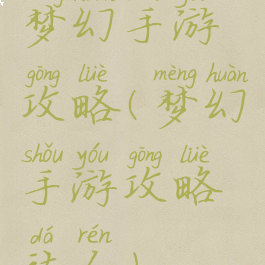 梦幻手游
gōng lüè mèng huàn
攻略(梦幻
shǒu yóu gōng lüè
手游攻略
dá rén